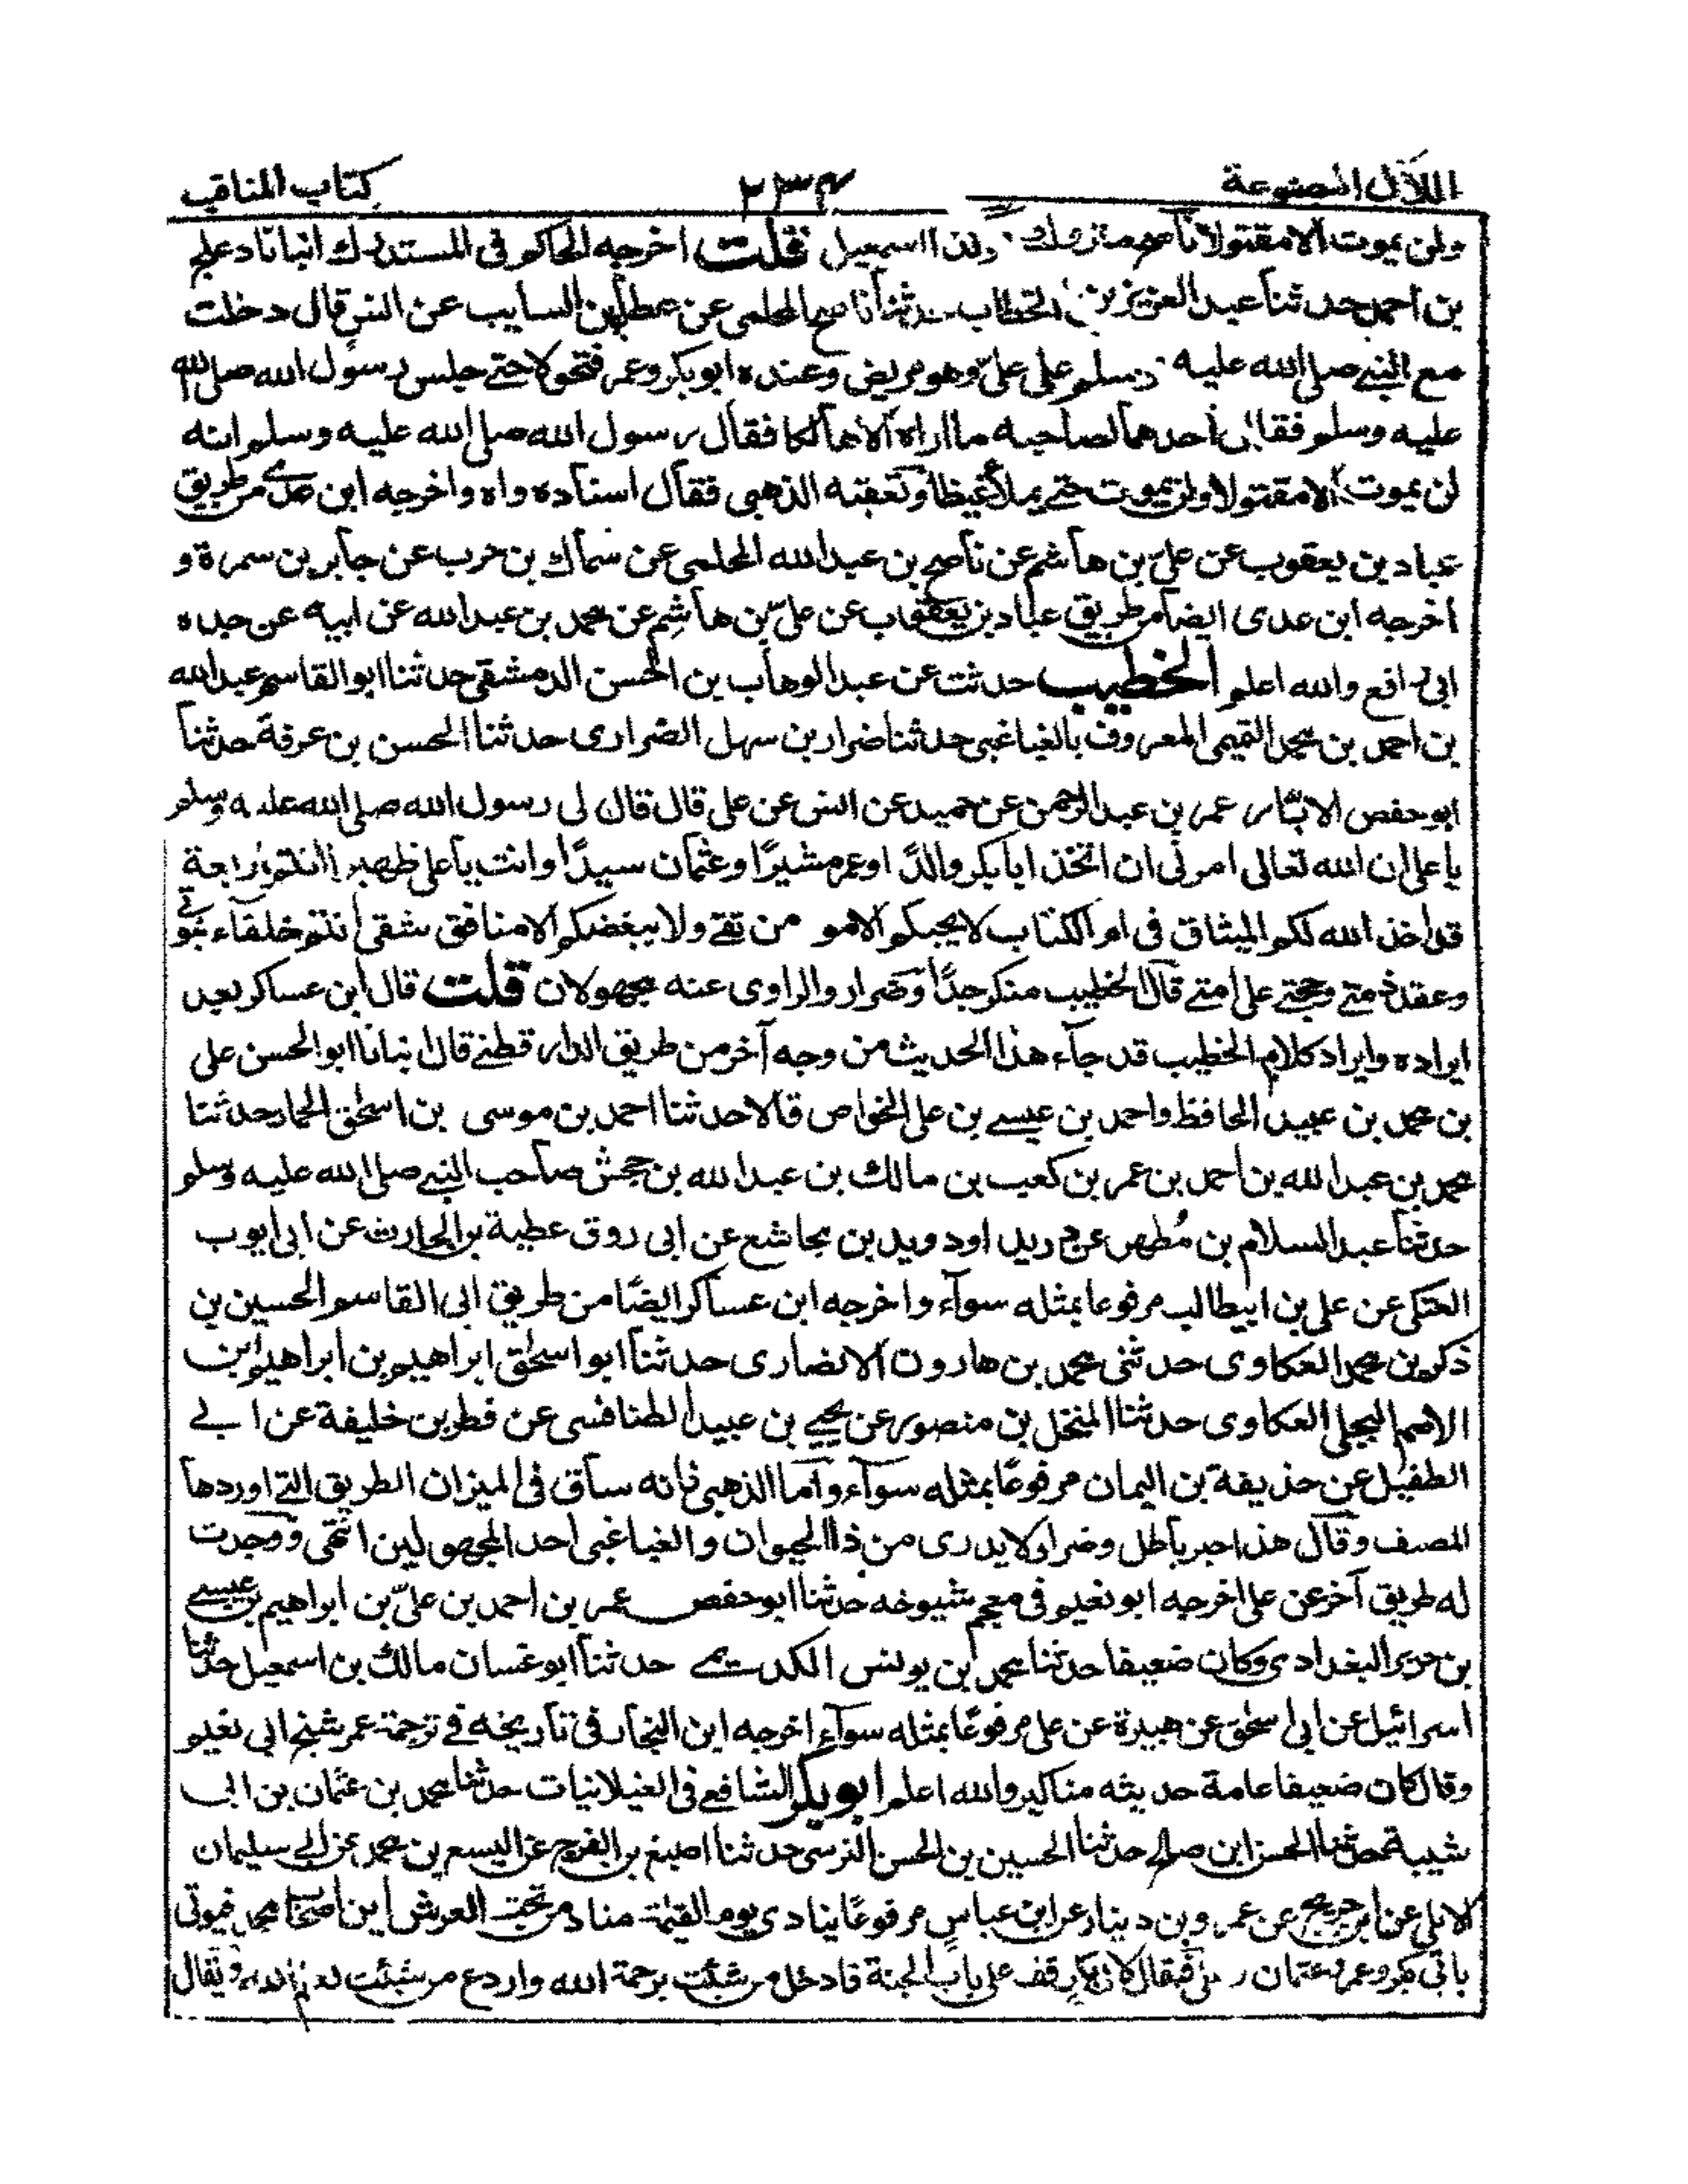 اللآلی المصنوعة ٢٣٤ كتاب المناقب
ولن يموت الامقتولا ناصح متروك اسمعيل قلت اخرجه الحاكم فى المستدرك انبانا دعلج
بن احمد حدثنا عبد العزيز بن الخطاب حدثنا ناصح المحلمى عن عطاء بن السايب عن انس قال دخلت
مع النبى صلى الله عليه وسلم على علىّ وهو مريض وعنده ابو بكر وعمر فتحولا حتى جلس رسول الله صلى الله
عليه وسلم فقال احدهما لصاحبه ما اراه الا هالكا فقال رسول الله صلى الله عليه وسلم انه
لن يموت الا مقتولا ولن يموت حتى يملأ غيظا وتعقبه الذهبى فقال اسناده واه واخرجه ابن عدى من طريق
عباد بن يعقوب عن علىّ بن هاشم عن ناصح بن عبد الله المحلمى عن سماك بن حرب عن جابر بن سمرة و
اخرجه ابن عدى ايضا من طريق عباد بن يعقوب عن علىّ بن هاشم عن محمد بن عبد الله عن ابيه عن جده
ابى رافع والله اعلم الخطيب حدثت عن عبد الوهاب بن الحسن الدمشقى حدثنا ابو القاسم عبد الله
بن احمد بن محمد التميمى المعروف بالغباغبى حدثنا ضرار بن سهل الضرارى حدثنا الحسن بن عرفة حدثنا
ابو حفص الابّار عمر بن عبد الرحمن عن حميد عن انس عن على قال قال لى رسول الله صلى الله عليه وسلم
يا على ان الله تعالى امرنى ان اتخذ ابا بكر والدًا وعمر مشيرًا وعثمان سيدًا وانت يا على ظهيرا انتم اربعة
قد اخذ الله لكم الميثاق فى ام الكتاب لا يحبكم الا مومن تقى ولا يبغضكم الا منافق شقى انتم خلفاء نبوتى
وعقد ذمتى وحجتى على امتى قال الخطيب منكر جدًا وضرار والراوى عنه مجهولان قلت قال ابن عساكر بعد
ايراده وايراد كلام الخطيب قد جاء هذا الحديث من وجه آخر من طريق الدار قطنى قال انبانا ابو الحسن على
بن محمد بن عبيد الحافظ واحمد بن عيسى بن على الخواص قالا حدثنا احمد بن موسى بن اسحٰق الحمار حدثنا
محمد بن عبد الله بن احمد بن عمر بن كعب بن مالك بن عبد الله بن جحش صاحب النبى صلى الله عليه وسلم
حدثنا عبد السلام بن مُطهر عن دريد اود ويد بن مجاشع عن ابى روق عطية بن الحارث عن ابى ايوب
العتكى عن على بن ابيطالب مرفوعا بمثله سوآء واخرجه ابن عساكر ايضًا من طريق ابى القاسم الحسين بن
ذكر بن محمد العكاوى حدثنى محمد بن هارون الانصارى حدثنا ابو اسحٰق ابراهيم بن ابراهيم ابن
الاصم البجلى العكاوى حدثنا المنخل بن منصور عن يحيى بن عبيد الطنافسى عن فطر بن خليفة عن ابى
الطفيل عن حذيفة بن اليمان مرفوعًا بمثله سوآء واما الذهبى فانه ساق فى الميزان الطريق التى اوردها
المصنف وقال هذا خبر باطل وضرار لا يدرى من ذا الحيوان والغباغبى احد المجهولين انتهى ووجدت
له طريق آخر عن على اخرجه ابو نعيم فى معجم شيوخه حدثنا ابو حفص عمر بن احمد بن علىّ بن ابراهيم بن عيسى
بن جرير البغدادى وكان ضعيفا حدثنا محمد بن يونس الكديمى حدثنا ابو غسان مالك بن اسمعيل حدثنا
اسرائيل عن ابى اسحٰق عن هبيرة عن على مرفوعًا بمثله سوآء اخرجه ابن النجار فى تاريخه فى ترجمة عمر شيخ ابى نعيم
وقال كان ضعيفا عامة حديثه مناكير والله اعلم ابو بكر الشافعى فى الغيلانيات حدثنا محمد بن عثمان بن ابى
شيبة حدثنا الحسن ابن صالح حدثنا الحسين بن الحسن النرسى حدثنا اصبغ بن الفرج عن اليسع بن محمد عن ابى سليمان
الايلى عن ابن جريج عن عمرو بن دينار عن ابن عباس مرفوعًا ينادى يوم القيٰمة مناد من تحت العرش اين اصحاب محمد فيوتى
بابى بكر وعمر وعثمان فيقال لابى بكر قف على باب الجنة فادخل من شئت برحمة الله واردع من شئت ويقال